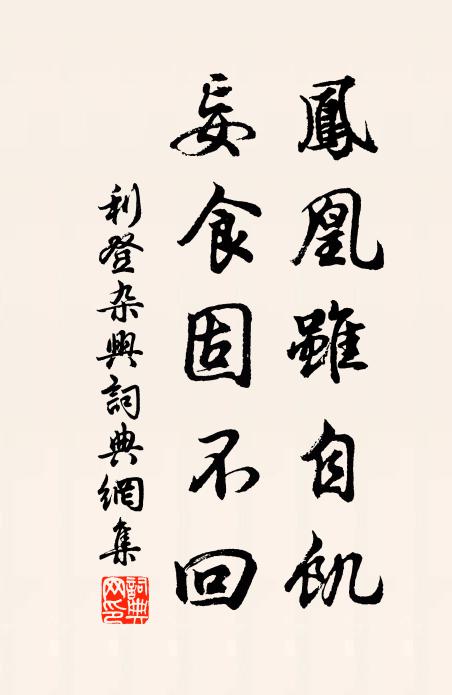 鳳凰雖自飢
妄食固不回
利登杂興詞典網集
詞典网印